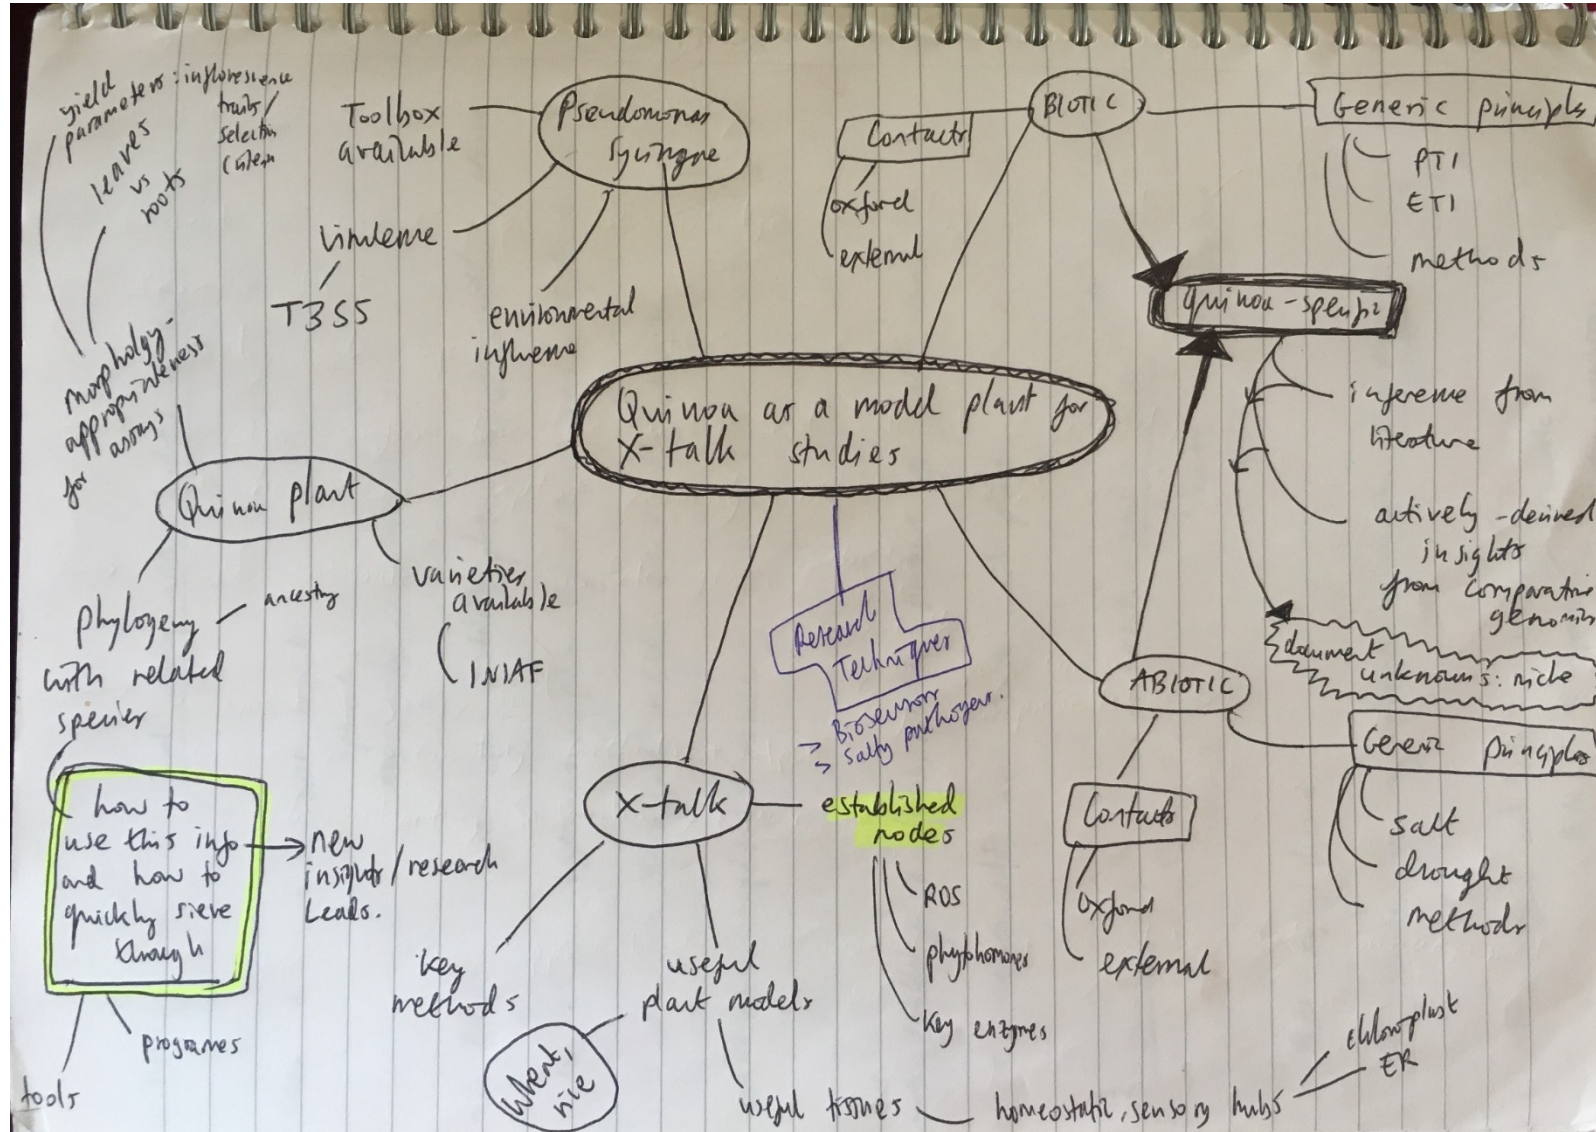 yield
parameters: inflorescence
traits/
selection
criteria
leaves
vs
roots
morphology-
appropriateness
for assays
Toolbox
available
Pseudomonas
Syringae
virulence
T3SS
environmental
influence
BIOTIC
Contacts
oxford
external
Generic principles
PTI
ETI
methods
quinoa-specific
inference from
literature
actively-derived
insights
from comparative
genomics
document
unknowns: niche
Quinoa as a model plant for
X-talk studies
Quinoa plant
phylogeny
with related
species
ancestry
varieties
available
INIAF
how to
use this info
and how to
quickly sieve
through
new
insights/research
Leads.
programes
tools
Research
Techniques
> Biosensors
> Salty pathogens.
X-talk
established
nodes
ROS
phytohormones
key enzymes
key
methods
useful
plant models
Wheat,
rice
useful tissues
homeostatic, sensory hubs
chloroplast
ER
ABIOTIC
Contacts
oxford
external
Generic principles
salt
drought
methods